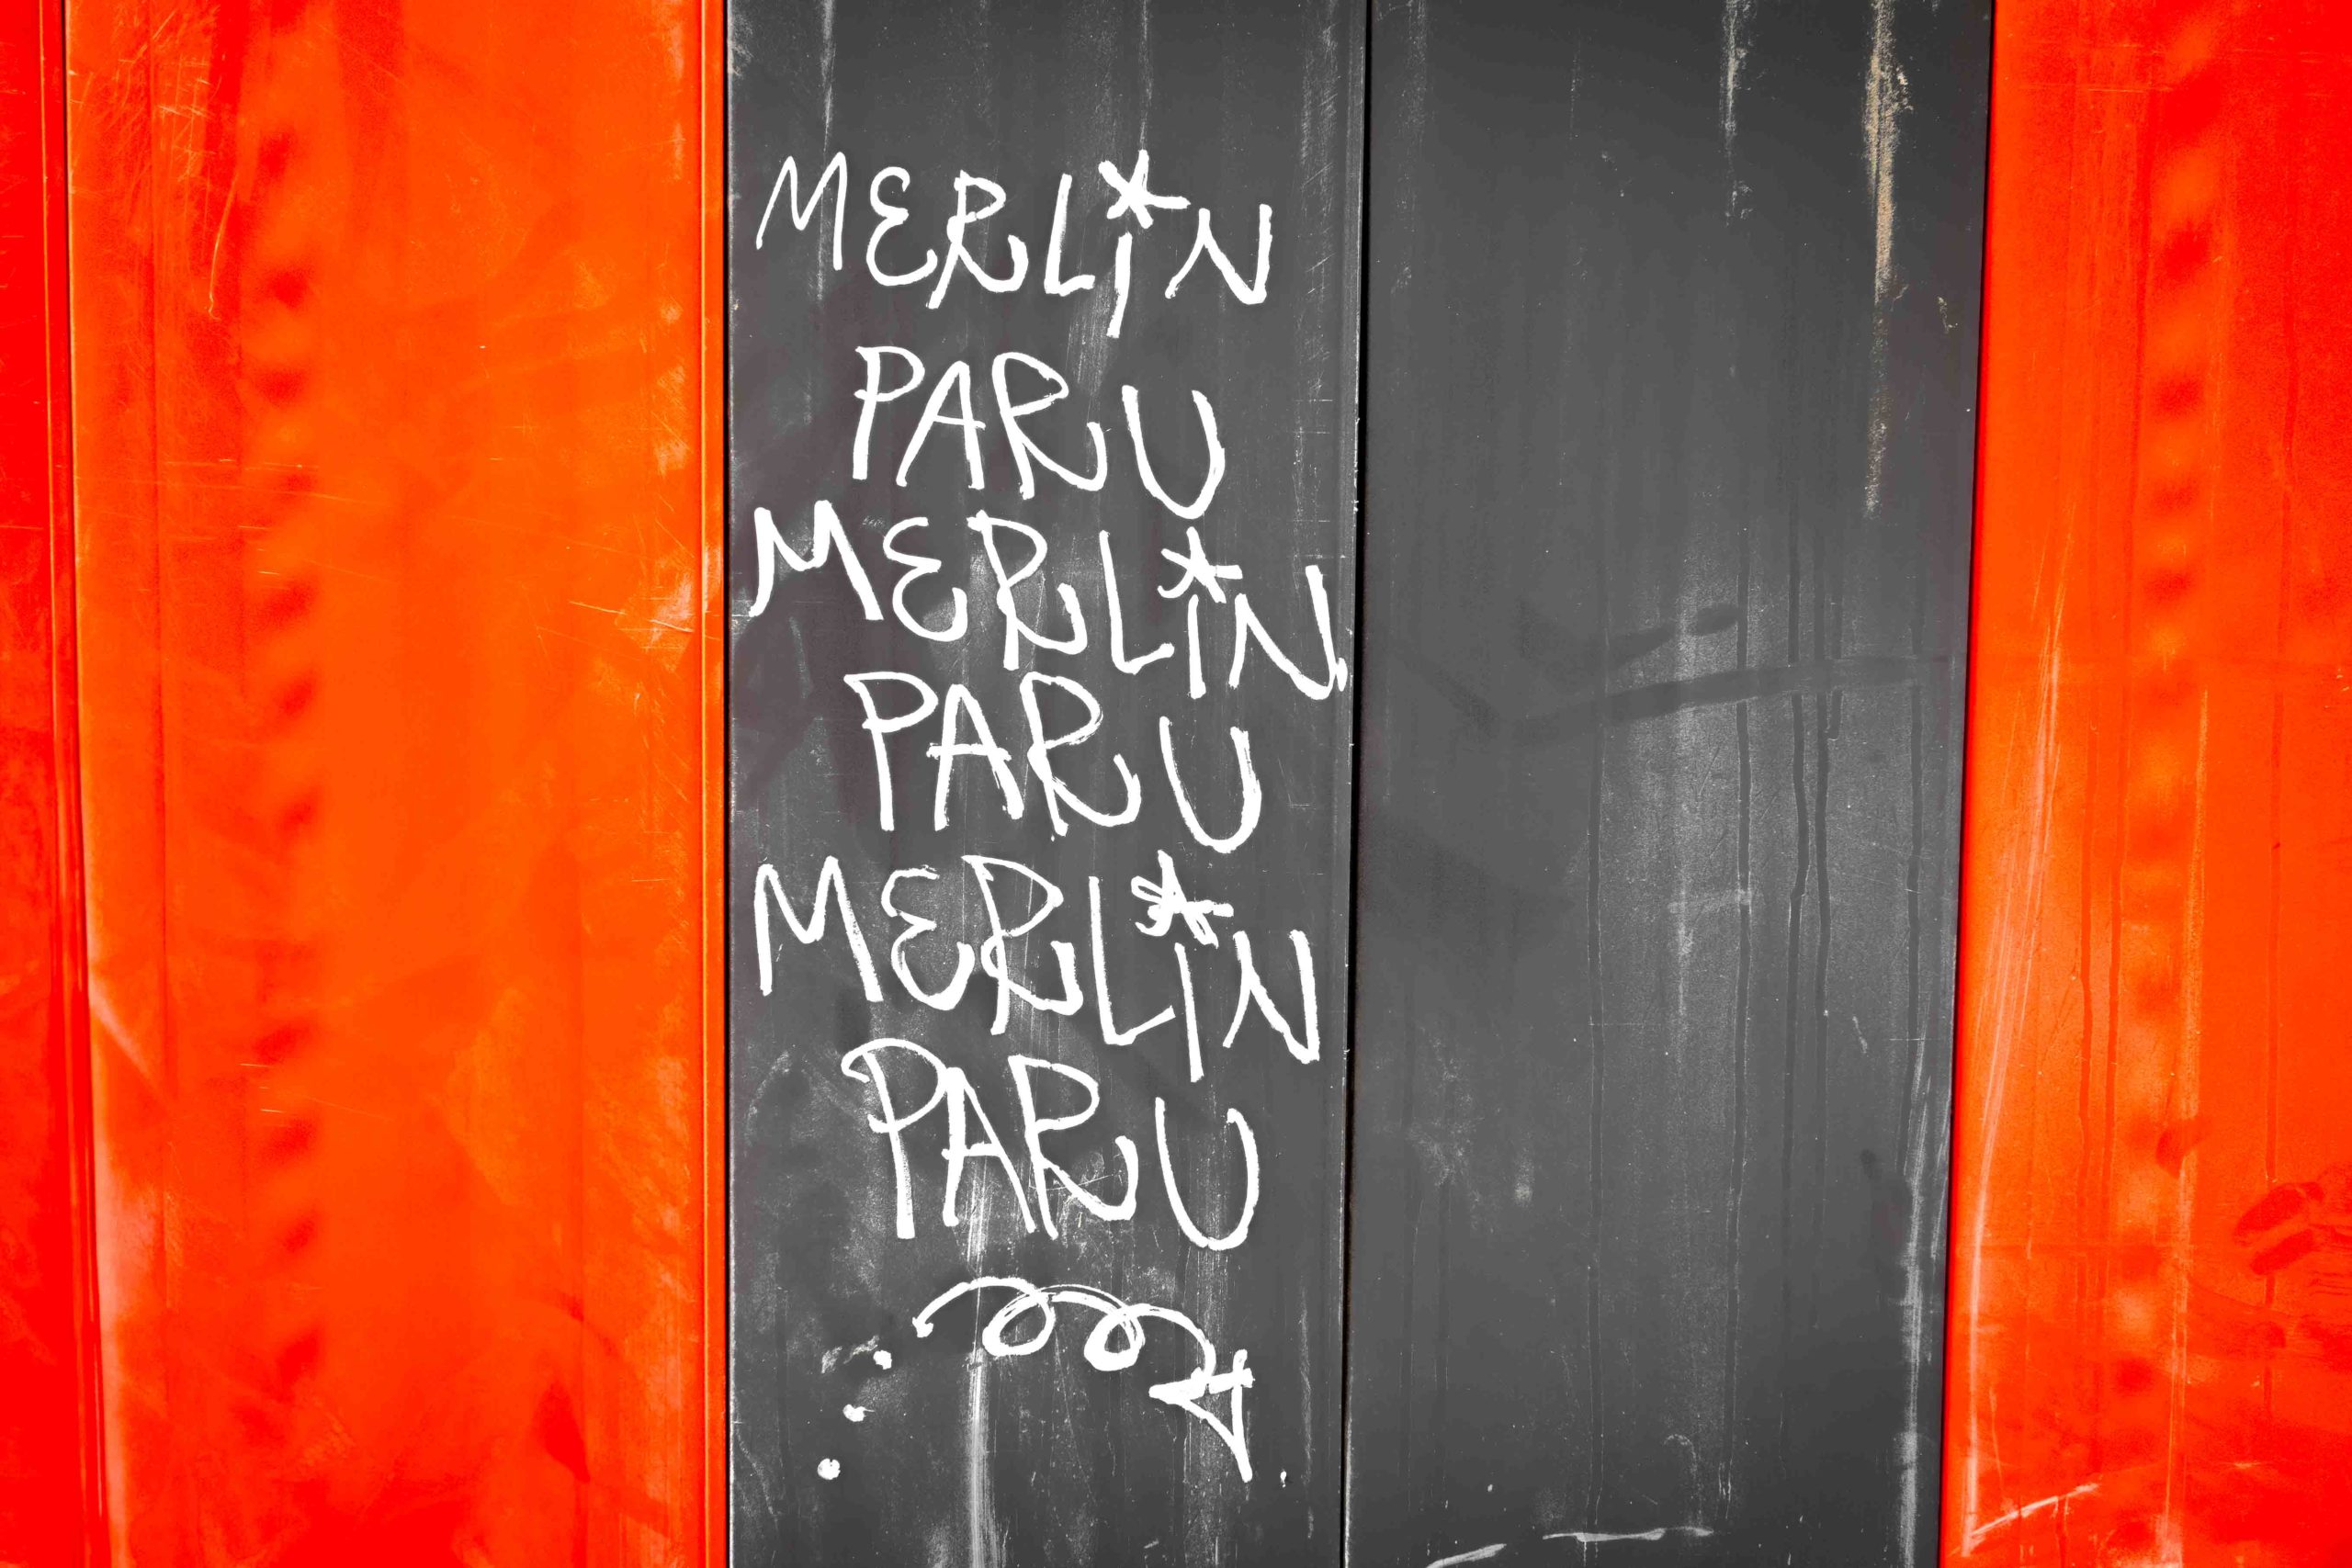 MERLiN
PARU
MERLiN
PARU
MERLiN
PARU